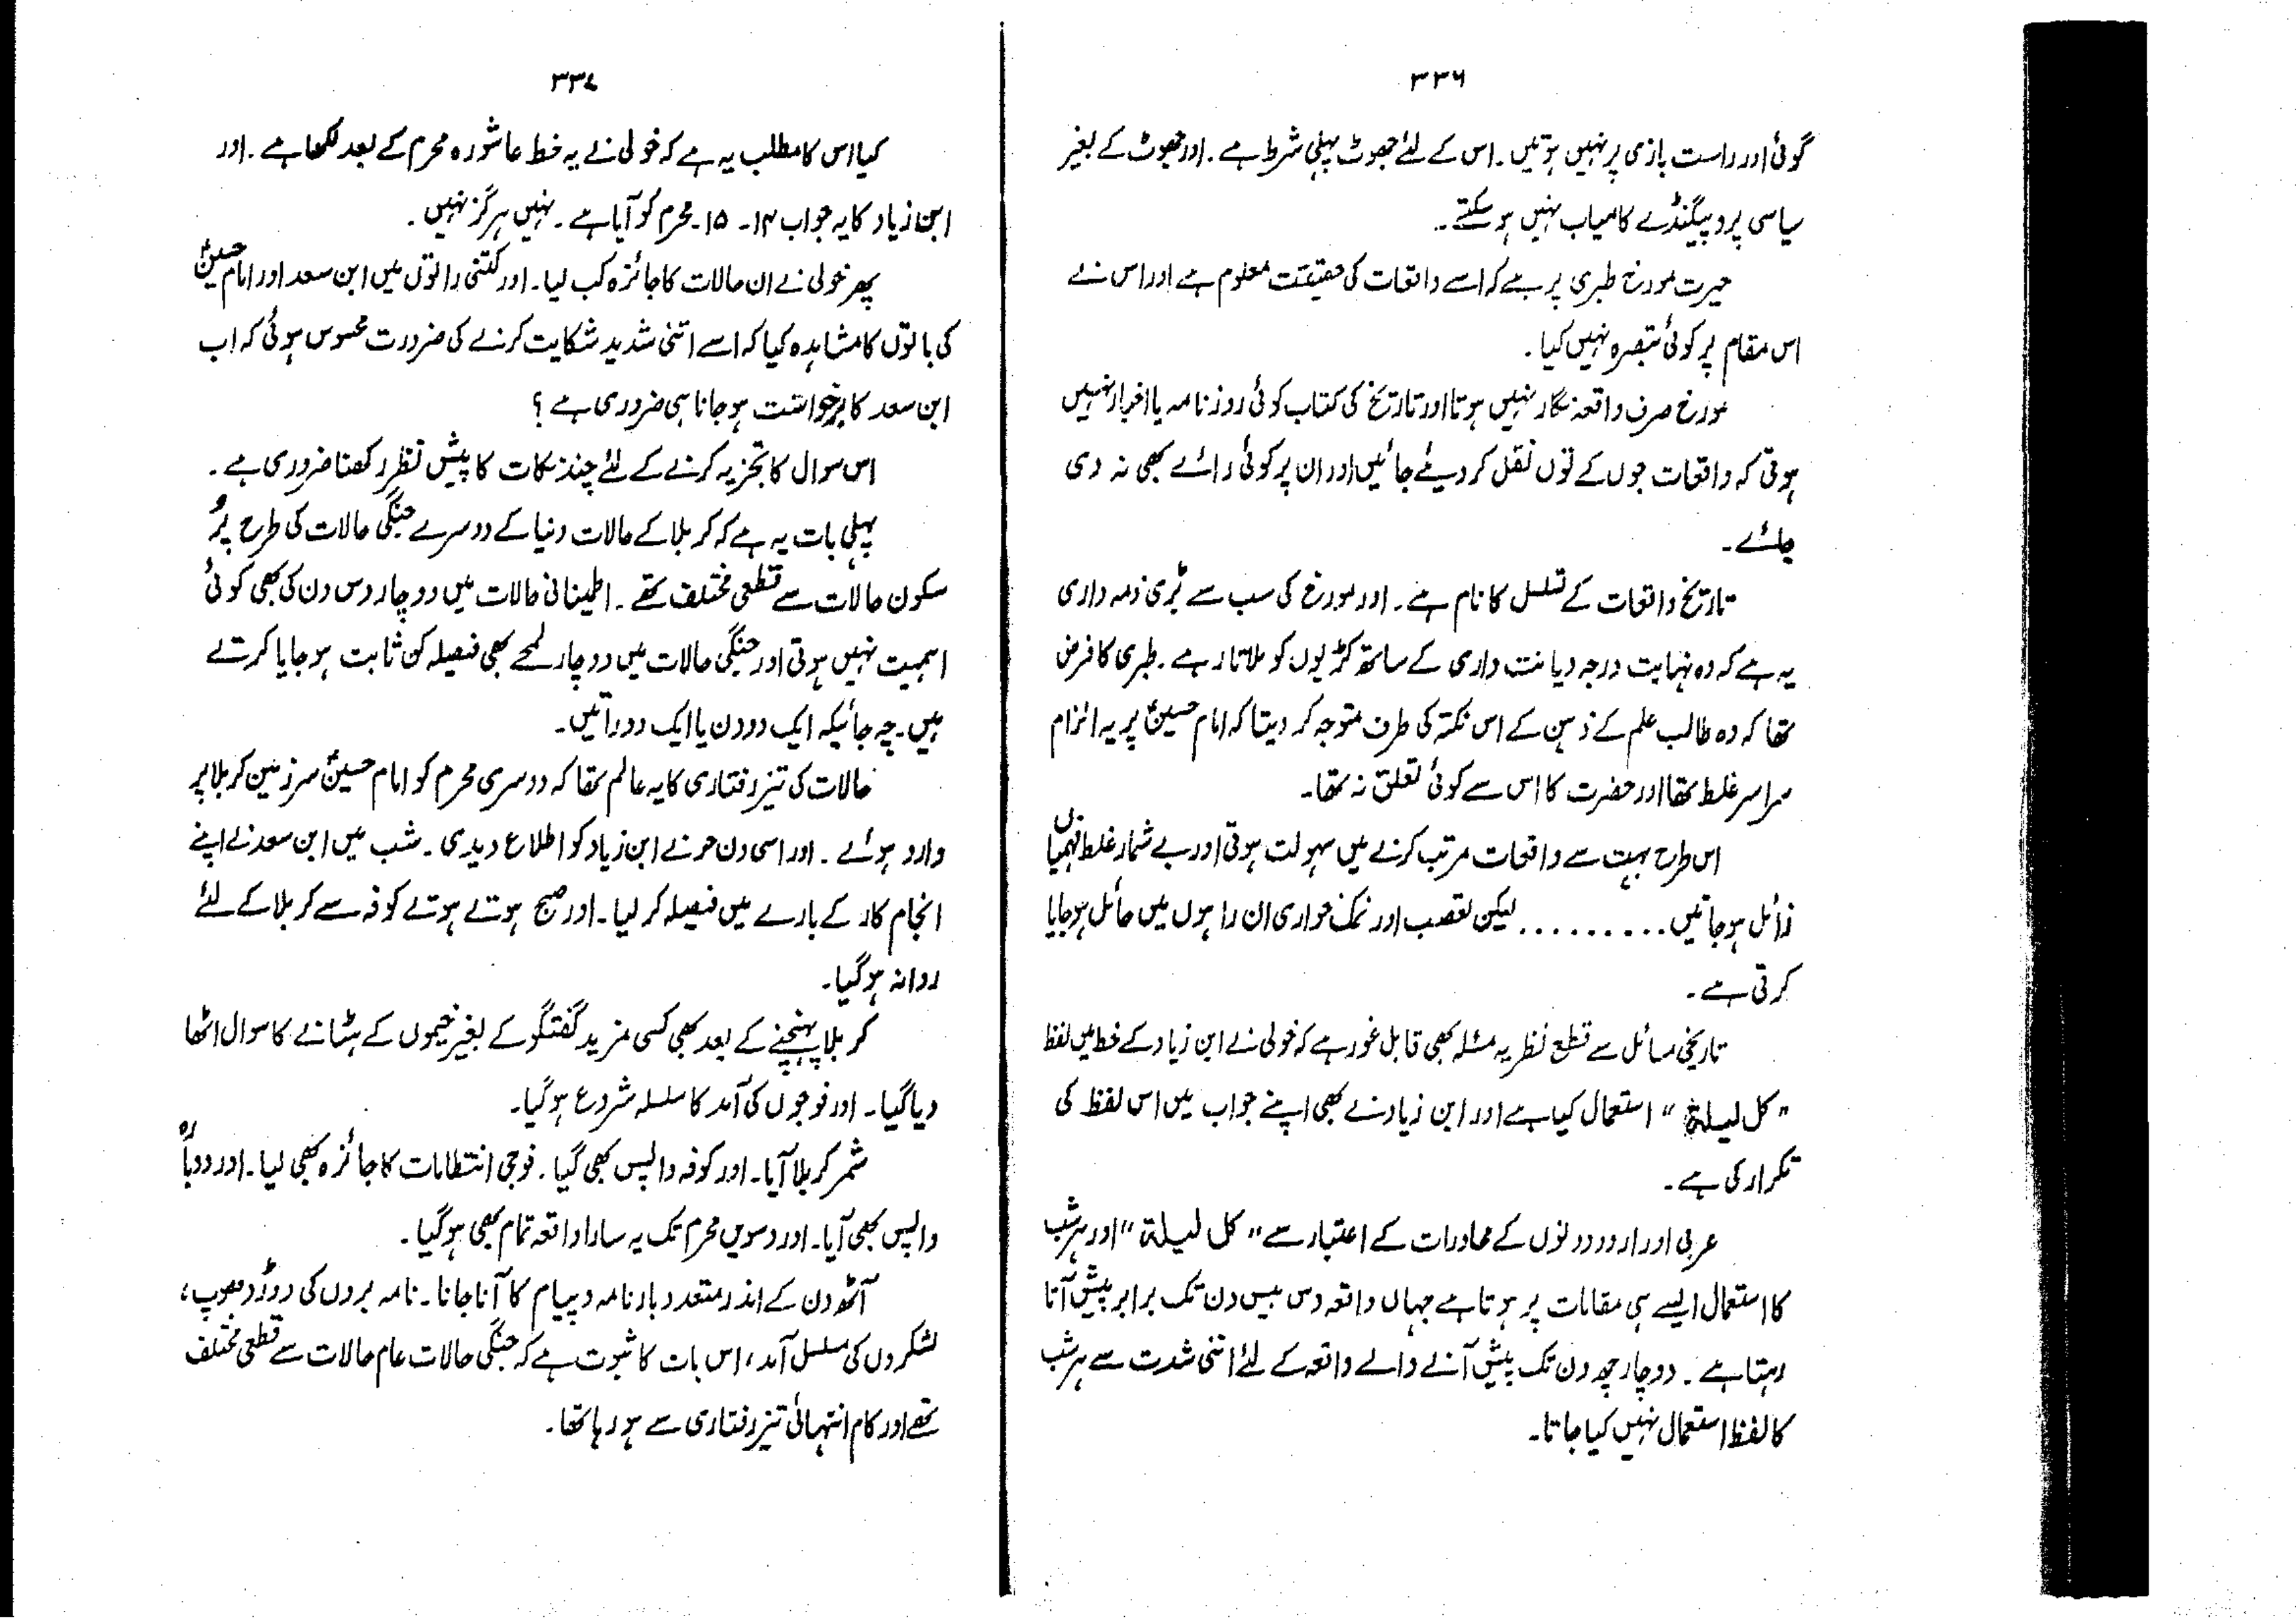 ۳۳۶
گوئی اور راست بازی پر نہیں ہوتیں۔ اس کے لئے جھوٹ پہلی شرط ہے۔ اور جھوٹ کے بغیر
سیاسی پروپیگنڈے کامیاب نہیں ہو سکتے۔
حیرت مورخ طبری پر ہے کہ اسے واقعات کی حقیقت معلوم ہے اور اس نے
اس مقام پر کوئی تبصرہ نہیں کیا۔
مورخ صرف واقعہ نگار نہیں ہوتا اور تاریخ کی کتاب کوئی روزنامہ یا اخبار نہیں
ہوتی کہ واقعات جوں کے توں نقل کر دیئے جائیں اور ان پر کوئی رائے بھی نہ دی
جائے۔
تاریخ واقعات کے تسلسل کا نام ہے۔ اور مورخ کی سب سے بڑی ذمہ داری
یہ ہے کہ وہ نہایت درجہ دیانت داری کے ساتھ کڑیوں کو ملاتا رہے۔ طبری کا فرض
تھا کہ وہ طالب علم کے ذہن کے اس نکتہ کی طرف متوجہ کر دیتا کہ امام حسینؑ پر یہ الزام
سراسر غلط تھا اور حضرت کا اس سے کوئی تعلق نہ تھا۔
اس طرح بہت سے واقعات مرتب کرنے میں سہولت ہوتی اور بے شمار غلط فہمیاں
زائل ہو جاتیں.......... لیکن تعصب اور نمک خواری ان راہوں میں حائل ہو جایا
کرتی ہے۔
تاریخی مسائل سے قطع نظر یہ مسئلہ بھی قابل غور ہے کہ خولی نے ابن زیاد کے خط میں لفظ
"کل لیلۃ" استعمال کیا ہے اور ابن زیاد نے بھی اپنے جواب میں اس لفظ کی
تکرار کی ہے۔
عربی اور اردو دونوں کے محاورات کے اعتبار سے "کل لیلۃ" اور ہر شب
کا استعمال ایسے ہی مقامات پر ہوتا ہے جہاں واقعہ دس بیس دن تک برابر پیش آتا
رہتا ہے۔ دو چار چھ دن تک پیش آنے والے واقعہ کے لئے اتنی شدت سے ہر شب
کا لفظ استعمال نہیں کیا جاتا۔
۳۳۷
کیا اس کا مطلب یہ ہے کہ خولی نے یہ خط عاشورہ محرم کے بعد لکھا ہے۔ اور
ابن زیاد کا یہ جواب ۱۴۔ ۱۵۔ محرم کو آیا ہے۔ نہیں ہرگز نہیں۔
پھر خولی نے ان حالات کا جائزہ کب لیا۔ اور کتنی راتوں میں ابن سعد اور امام حسینؑ
کی باتوں کا مشاہدہ کیا کہ اسے اتنی شدید شکایت کرنے کی ضرورت محسوس ہوئی کہ اب
ابن سعد کا برخواست ہو جانا ہی ضروری ہے؟
اس سوال کا تجزیہ کرنے کے لئے چند نکات کا پیش نظر رکھنا ضروری ہے۔
پہلی بات یہ ہے کہ کربلا کے حالات دنیا کے دوسرے جنگی حالات کی طرح پُر
سکون حالات سے قطعی مختلف تھے۔ اطمینانی حالات میں دو چار دس دن کی بھی کوئی
اہمیت نہیں ہوتی اور جنگی حالات میں دو چار لمحے بھی فیصلہ کن ثابت ہو جایا کرتے
ہیں۔ چہ جائیکہ ایک دو دن یا ایک دو راتیں۔
حالات کی تیز رفتاری کا یہ عالم تھا کہ دوسری محرم کو امام حسینؑ سرزمین کربلا پر
وارد ہوئے۔ اور اسی دن حر نے ابن زیاد کو اطلاع دیدی۔ شب میں ابن سعد نے اپنے
انجام کار کے بارے میں فیصلہ کر لیا۔ اور صبح ہوتے ہوتے کوفہ سے کربلا کے لئے
روانہ ہو گیا۔
کربلا پہنچنے کے بعد بھی کسی مزید گفتگو کے بغیر خیموں کے ہٹانے کا سوال اٹھا
دیا گیا۔ اور فوجوں کی آمد کا سلسلہ شروع ہو گیا۔
شمر کربلا آیا۔ اور کوفہ واپس بھی گیا۔ فوجی انتظامات کا جائزہ بھی لیا۔ اور دوبارہ
واپس بھی آیا۔ اور دسویں محرم تک یہ سارا واقعہ تمام بھی ہو گیا۔
آٹھ دن کے اندر متعدد بار نامہ و پیام کا آنا جانا۔ نامہ بروں کی دوڑ دھوپ،
لشکروں کی مسلسل آمد، اس بات کا ثبوت ہے کہ جنگی حالات عام حالات سے قطعی مختلف
تھے اور کام انتہائی تیز رفتاری سے ہو رہا تھا۔